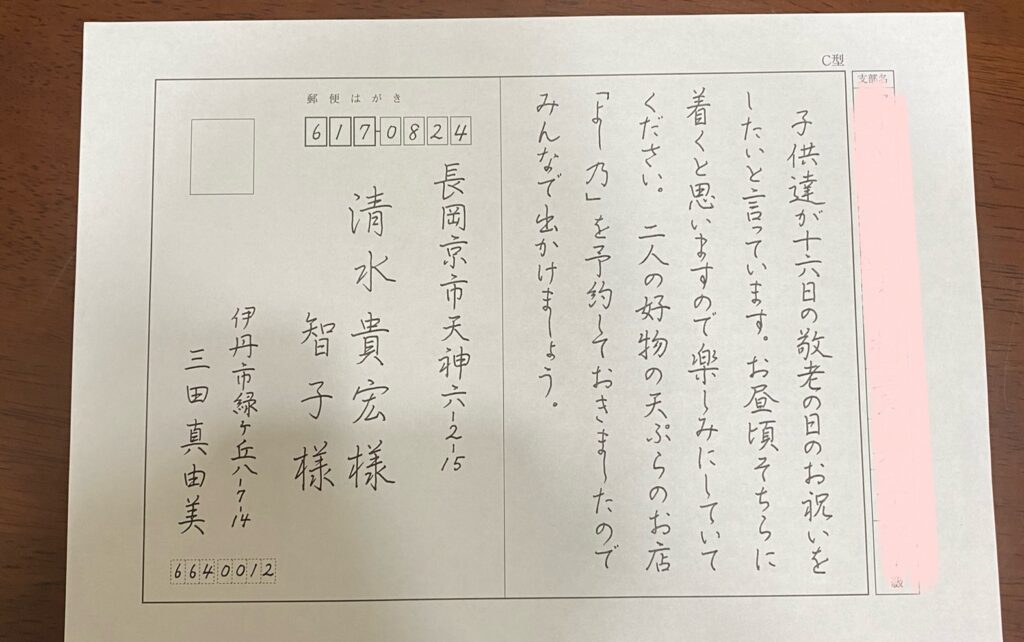 C型
支部名
子供達が十六日の敬老の日のお祝いを
したいと言っています。お昼頃そちらに
着くと思いますので楽しみにしていて
ください。二人の好物の天ぷらのお店
「よし乃」を予約しておきましたので
みんなで出かけましょう。
郵便はがき
617-0824
長岡京市天神六-2-15
清水貴宏様
智子様
伊丹市緑ヶ丘八-7-14
三田真由美
6640012